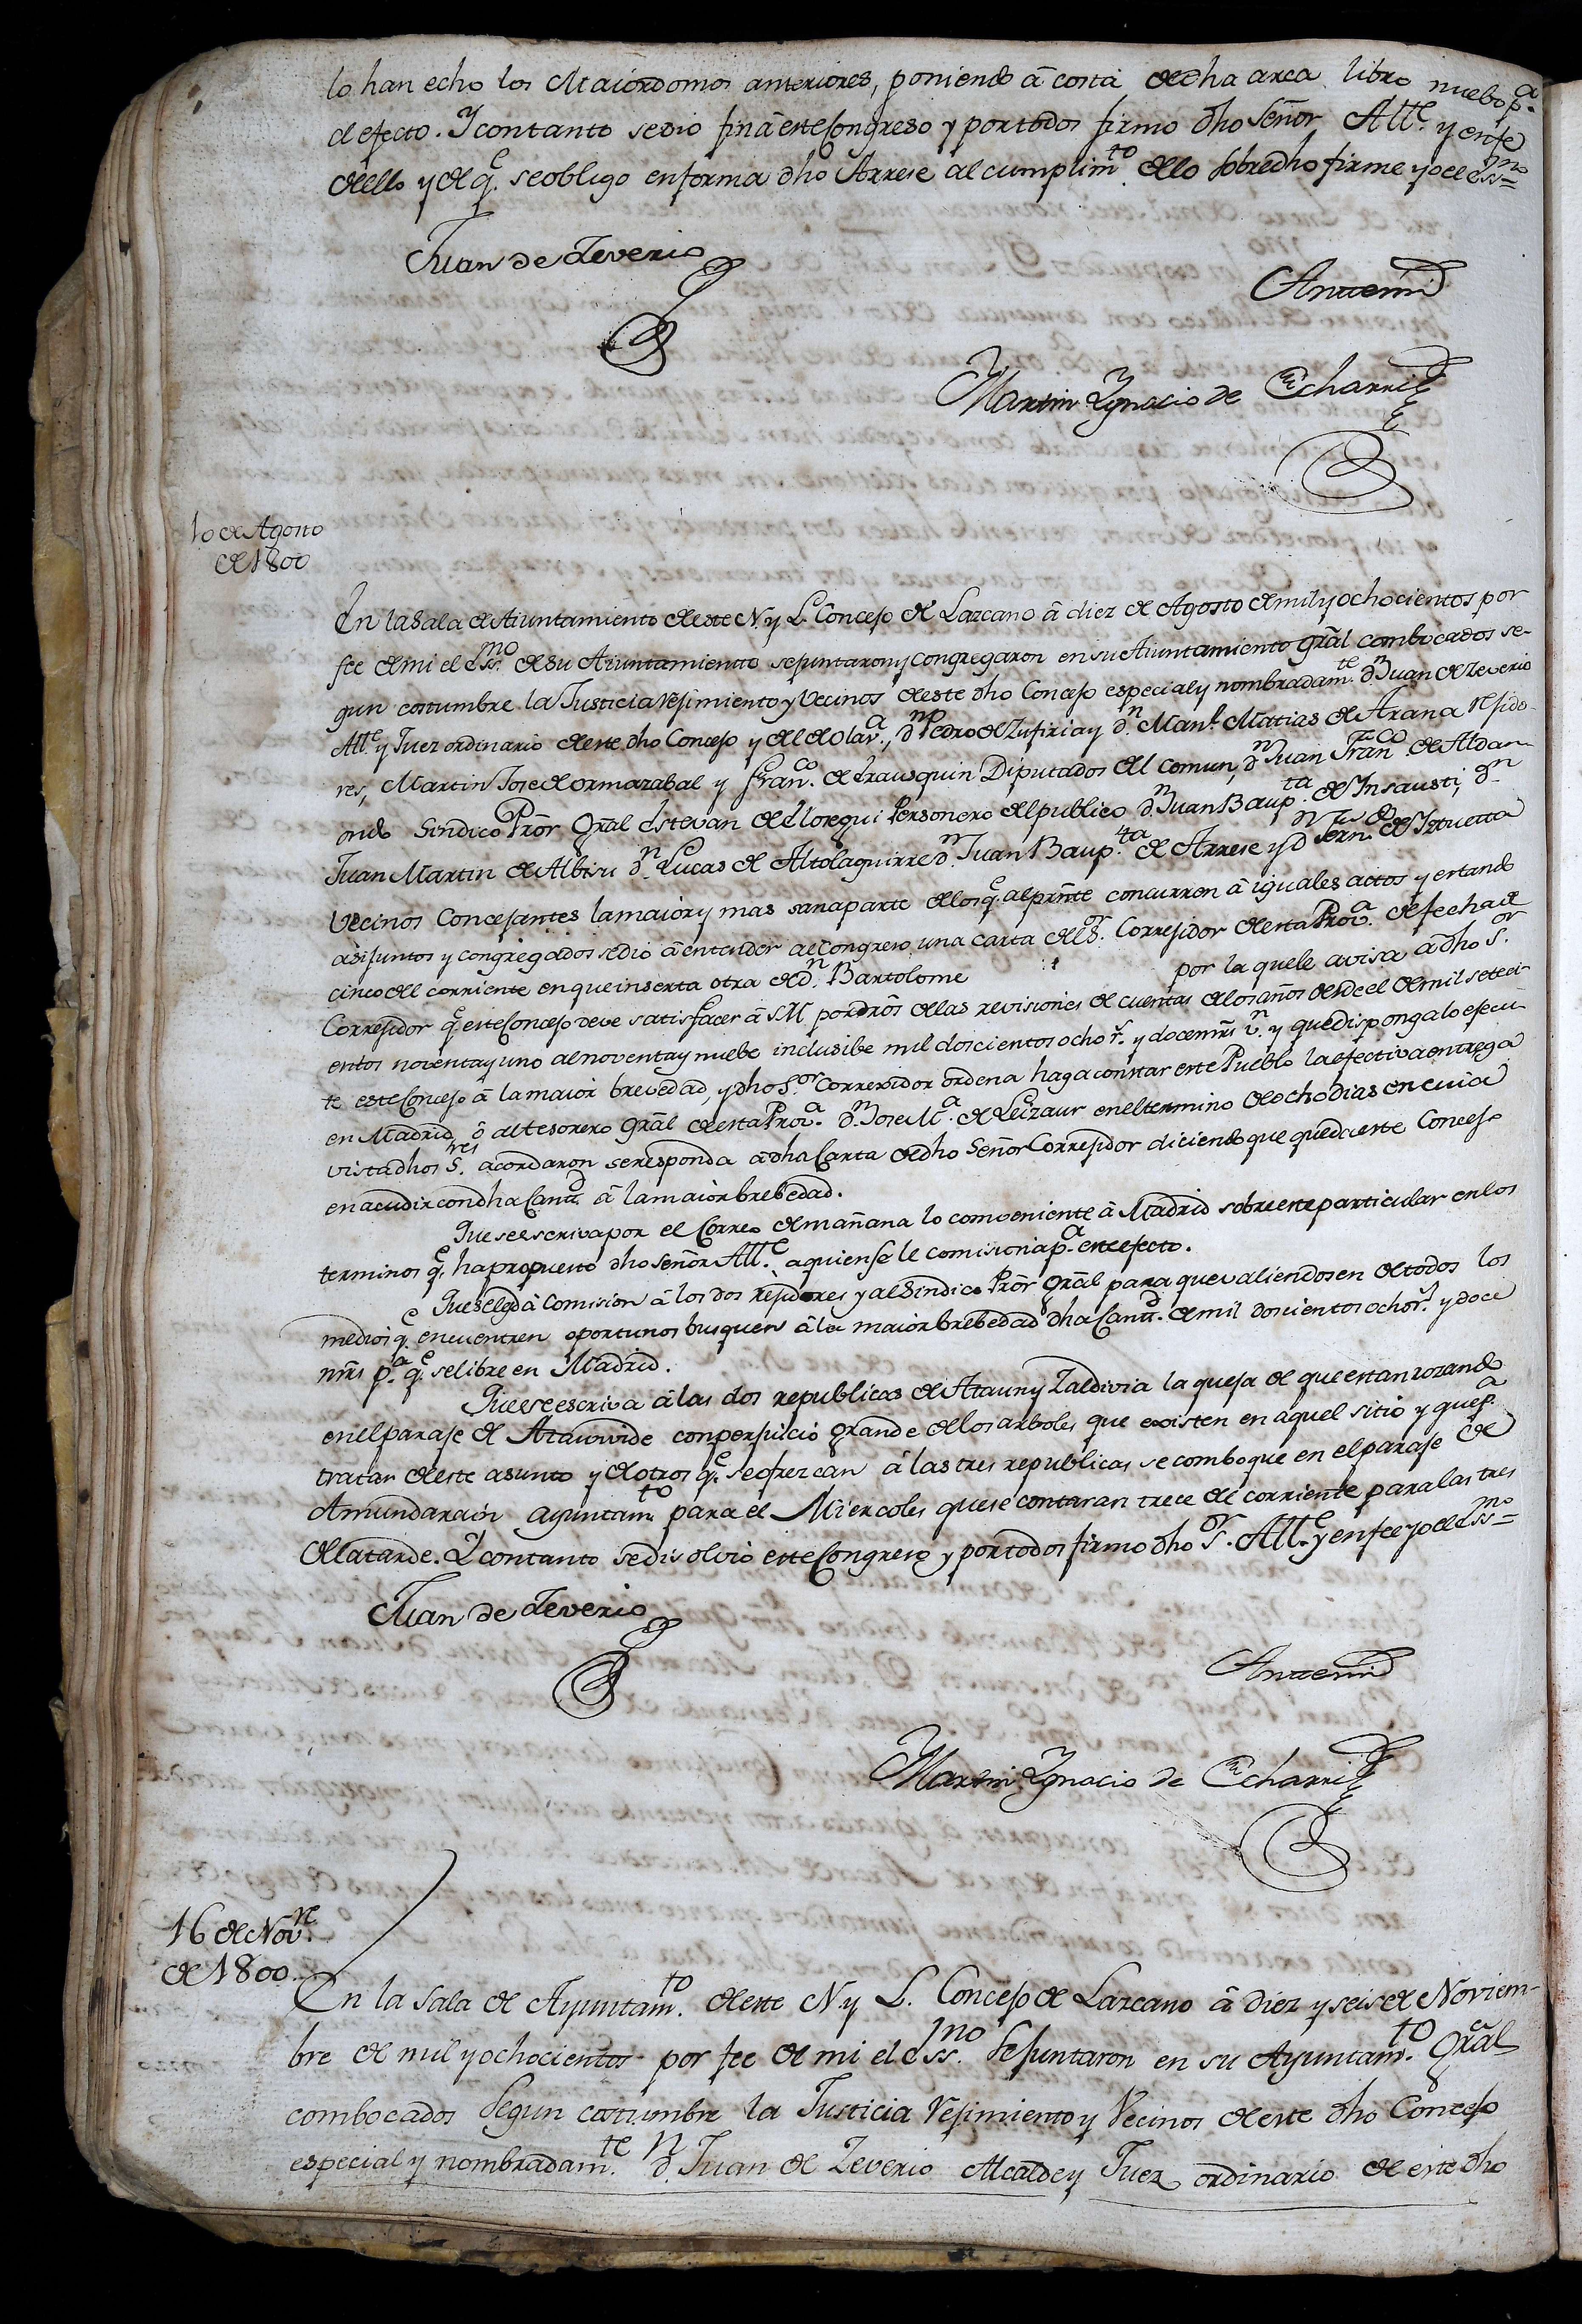 lo han echo los Maiordomos anteriores, poniendo â costa de dha arca libro nuebo p.ª
el efecto. Y con tanto se dio fin â este Congreso y por todos firmo dho Señor All.e y en fe
de ello y de q.e se obligo en forma dho Arrese al cumplim.to de lo sobredho firme yo el Ess.no =
Juan de Zeverio
Antemi
Martin Ygnacio de Echarri
10 de Agosto
de 1800
En la Sala de Aiuntamiento de este N. y L. Concejo de Lazcano â diez de Agosto de mil y ochocientos por
fee de mi el Ess.no de su Aiuntamiento se juntaron y congregaron en su Aiuntamiento gral combocados se-
gun costumbre la Justicia Rejimiento y Vecinos de este dho Concejo especial y nombradam.te d.n Juan de Zeverio
All.e y Juez ordinario de este dho Concejo y el de Olav.a, d.n Pedro de Zufiria y d.n Man.l Matias de Arana Rejido-
res, Martin Jose de Ormazabal y Fran.co de Irausquin Diputados del Comun, d.n Juan Fran.co de Aldan-
ondo Sindico Pror Gral Estevan de Elloregui Personero del publico d.n Juan Baup.ta de Insausti, d.n
Juan Martin de Albisu d.n Lucas de Altolaguirre d.n Juan Baup.ta de Arrese y d.n Fern.do de Yztuetta
Vecinos Concejantes la maior y mas sana parte de los q.e al prnte concurren â iguales actos y estando
asi juntos y congregados se dio â entender al Congreso una carta del S.or Correjidor de esta Prov.a de fecha de
cinco del corriente en que inserta otra de d.n Bartolome por la que le avisa â dho S.or
Correjidor q.e este Concejo deve satisfacer â S.M. por dros de las revisiones de cuentas de los años desde el de mil seteci-
entos noventa y uno al noventa y nuebe inclusibe mil doscientos ocho r.s y doce mrs v.n y que disponga lo ejecu-
te este Concejo â la maior brevedad, y dho S.or Correxidor ordena haga constar este Pueblo la efectiva entrega
en Madrid, ô al tesorero gral de esta Prov.a d.n Jose M.a de Leizaur en el termino de ocho dias en cuia
vista dhos S.res acordaron se responda â dha Carta de dho Señor Correjidor diciendo que queda este Concejo
en acudir con dha Cantd. â la maior brebedad.
Que se escriva por el Correo de mañana lo combeniente â Madrid sobre este particular en los
terminos q.e ha propuesto dho señor All.e a quien se le comisiona p.a este efecto.
Que se les dâ Comision â los dos rejidores y al Sindico Pror Gral para que valiendosen de todos los
medios q.e encuentren oportunos busquen â la maior brebedad dha Cantd. de mil doscientos ocho r.s y doce
mrs p.a q.e se libre en Madrid.
Que se escriva â las dos republicas de Ataun y Zaldivia la queja de que estan rozando
en el paraje de Ataunvide con perjuicio grande de los arboles que existen en aquel sitio y que p.a
tratar de este asunto y de otros q.e se ofrezcan â las tres republicas se comboque en el paraje de
Amundarain ayuntam.to para el Miercoles que se contaran trece del corriente para las tres
de la tarde. Y con tanto se disolvio este Congreso y por todos firmo dho S.or All.e y en fee yo el Ess.no =
Juan de Zeverio
Antemi
Martin Ygnacio de Echarri
16 de Nov.re
de 1800.
En la Sala de Ayuntam.to de este N. y L. Concejo de Lazcano â diez y seis de Noviem-
bre de mil y ochocientos por fee de mi el Ess.no se juntaron en su Ayuntam.to Gral
combocados segun costumbre la Justicia Rejimiento y Vecinos de este dho Concejo
especial y nombradam.te d.n Juan de Zeverio Alcalde y Juez ordinario de este dho